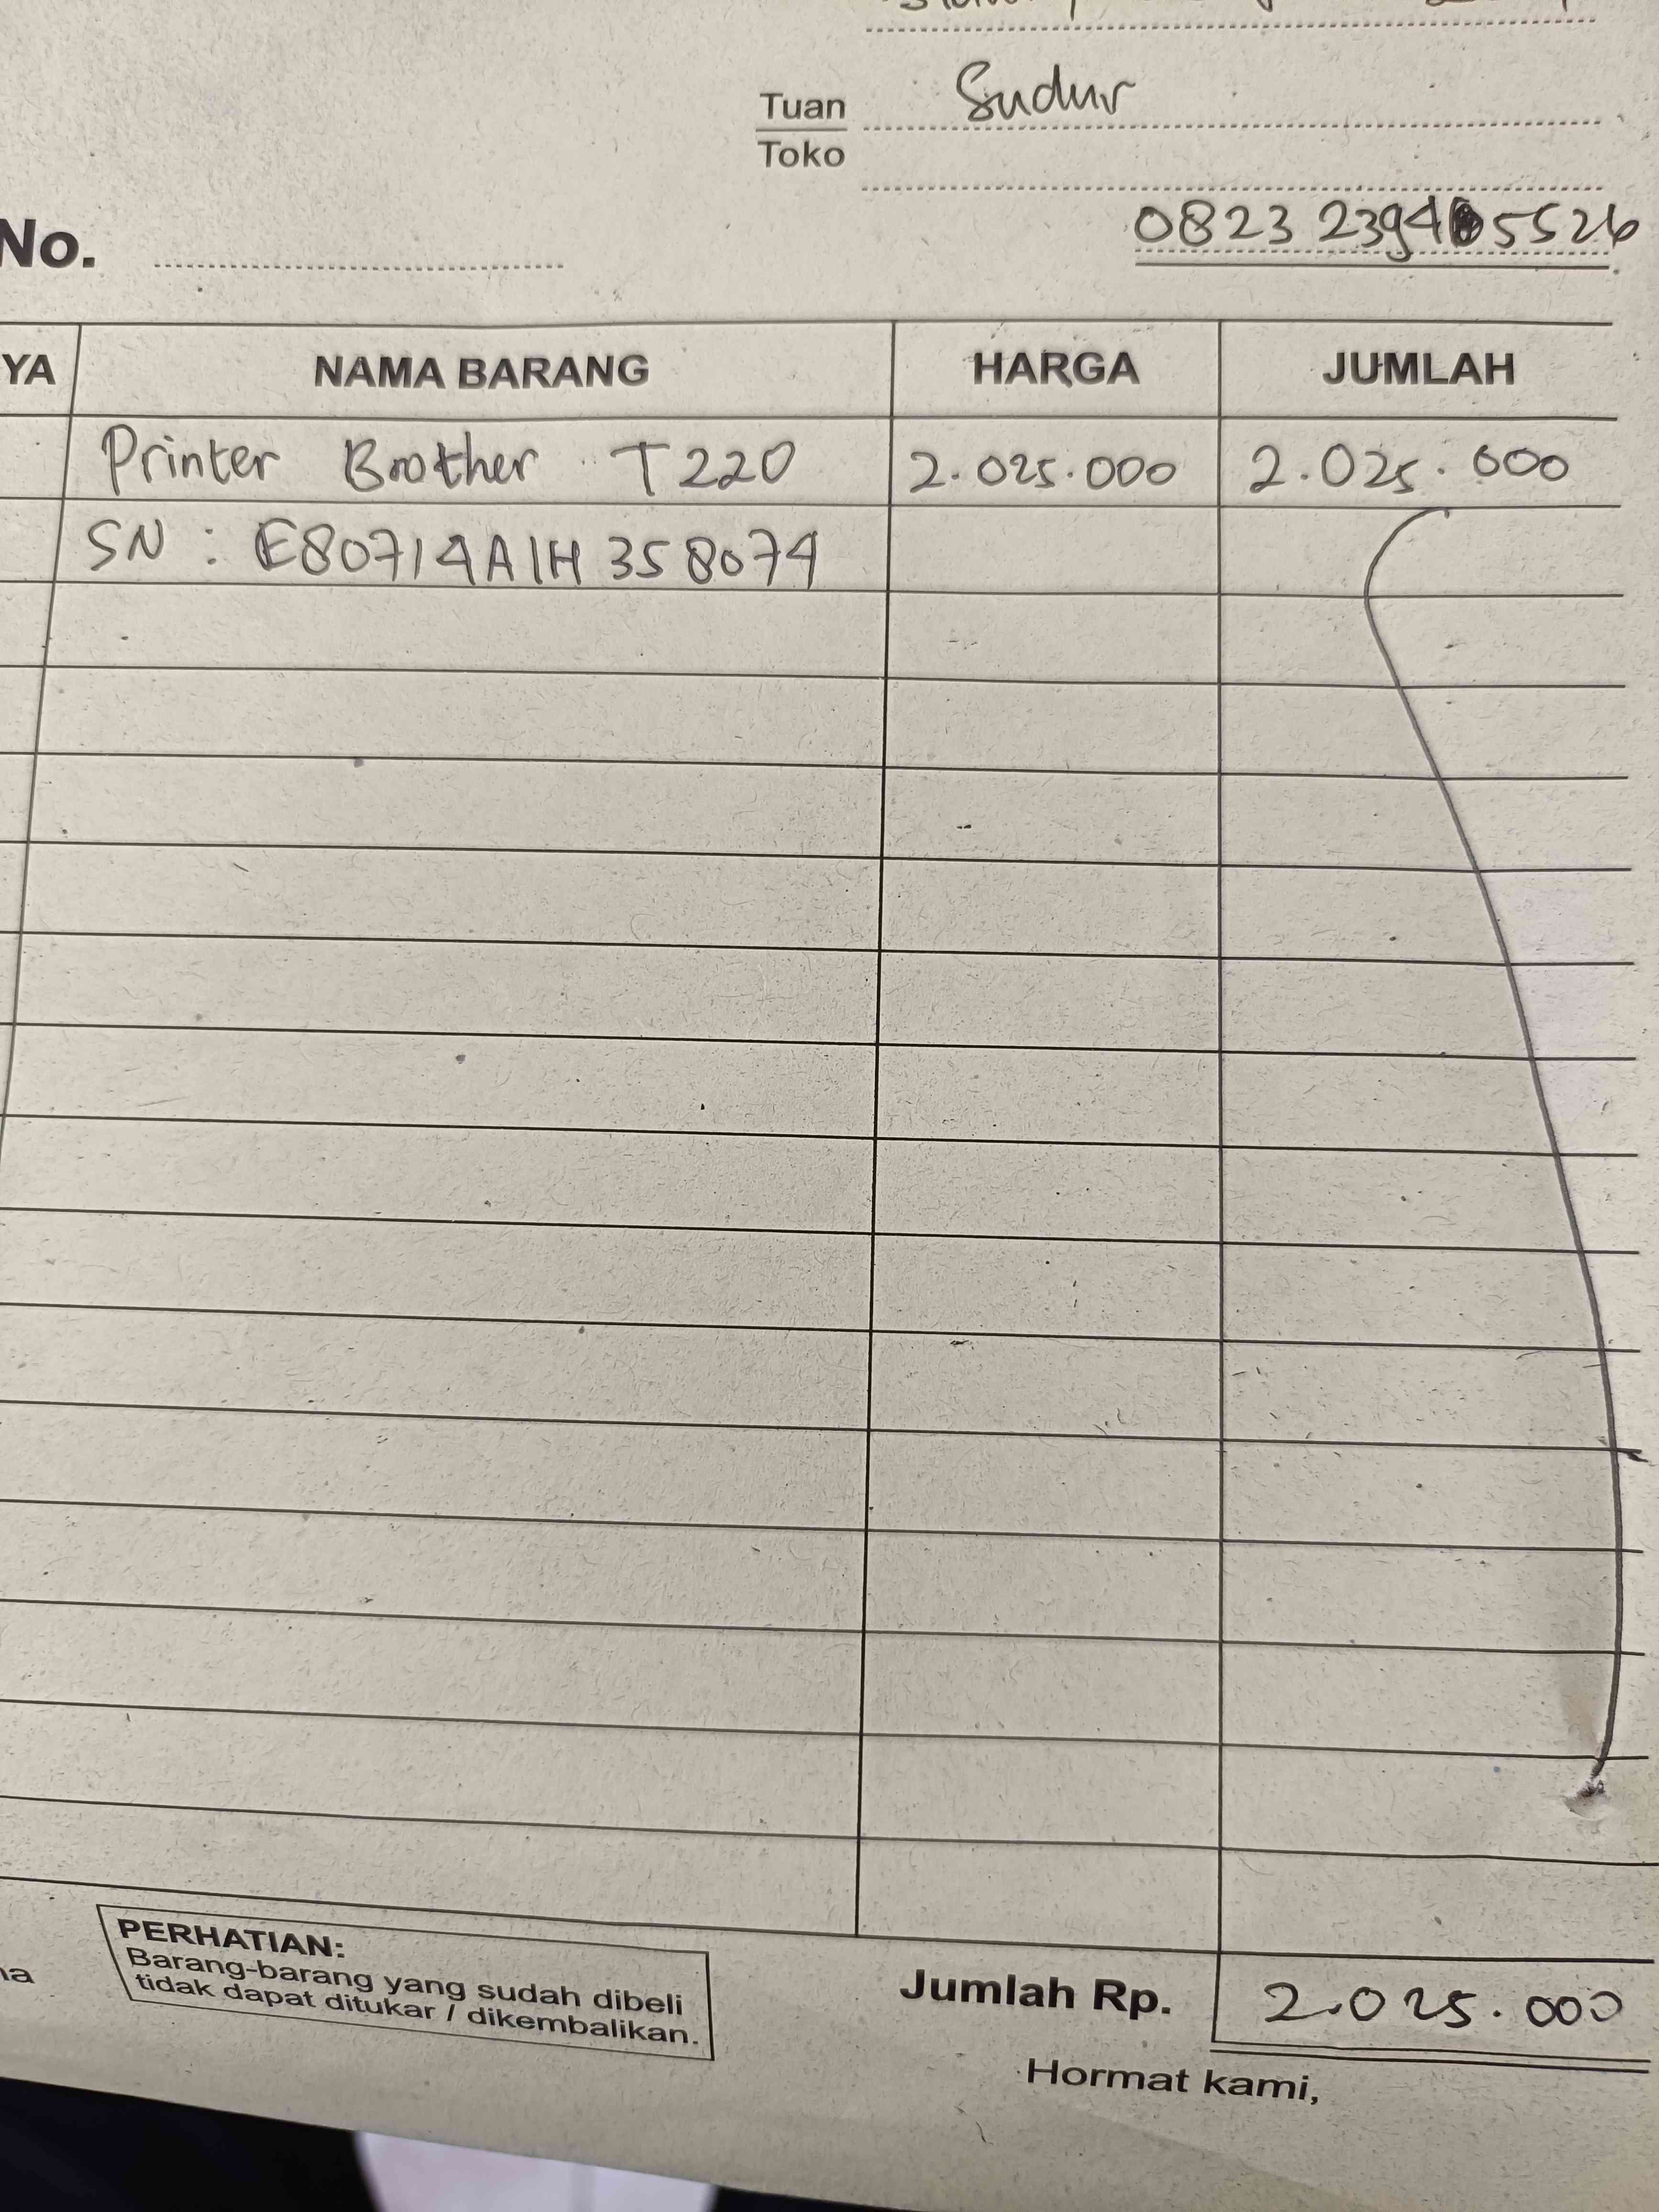 Tuan Sudur
Toko
0823 2394 5526
No.
YA NAMA BARANG HARGA JUMLAH
Printer Brother T220 2.025.000 2.025.000
SN : E80714A1H358074
PERHATIAN:
Barang-barang yang sudah dibeli
tidak dapat ditukar / dikembalikan.
Jumlah Rp. 2.025.000
Hormat kami,